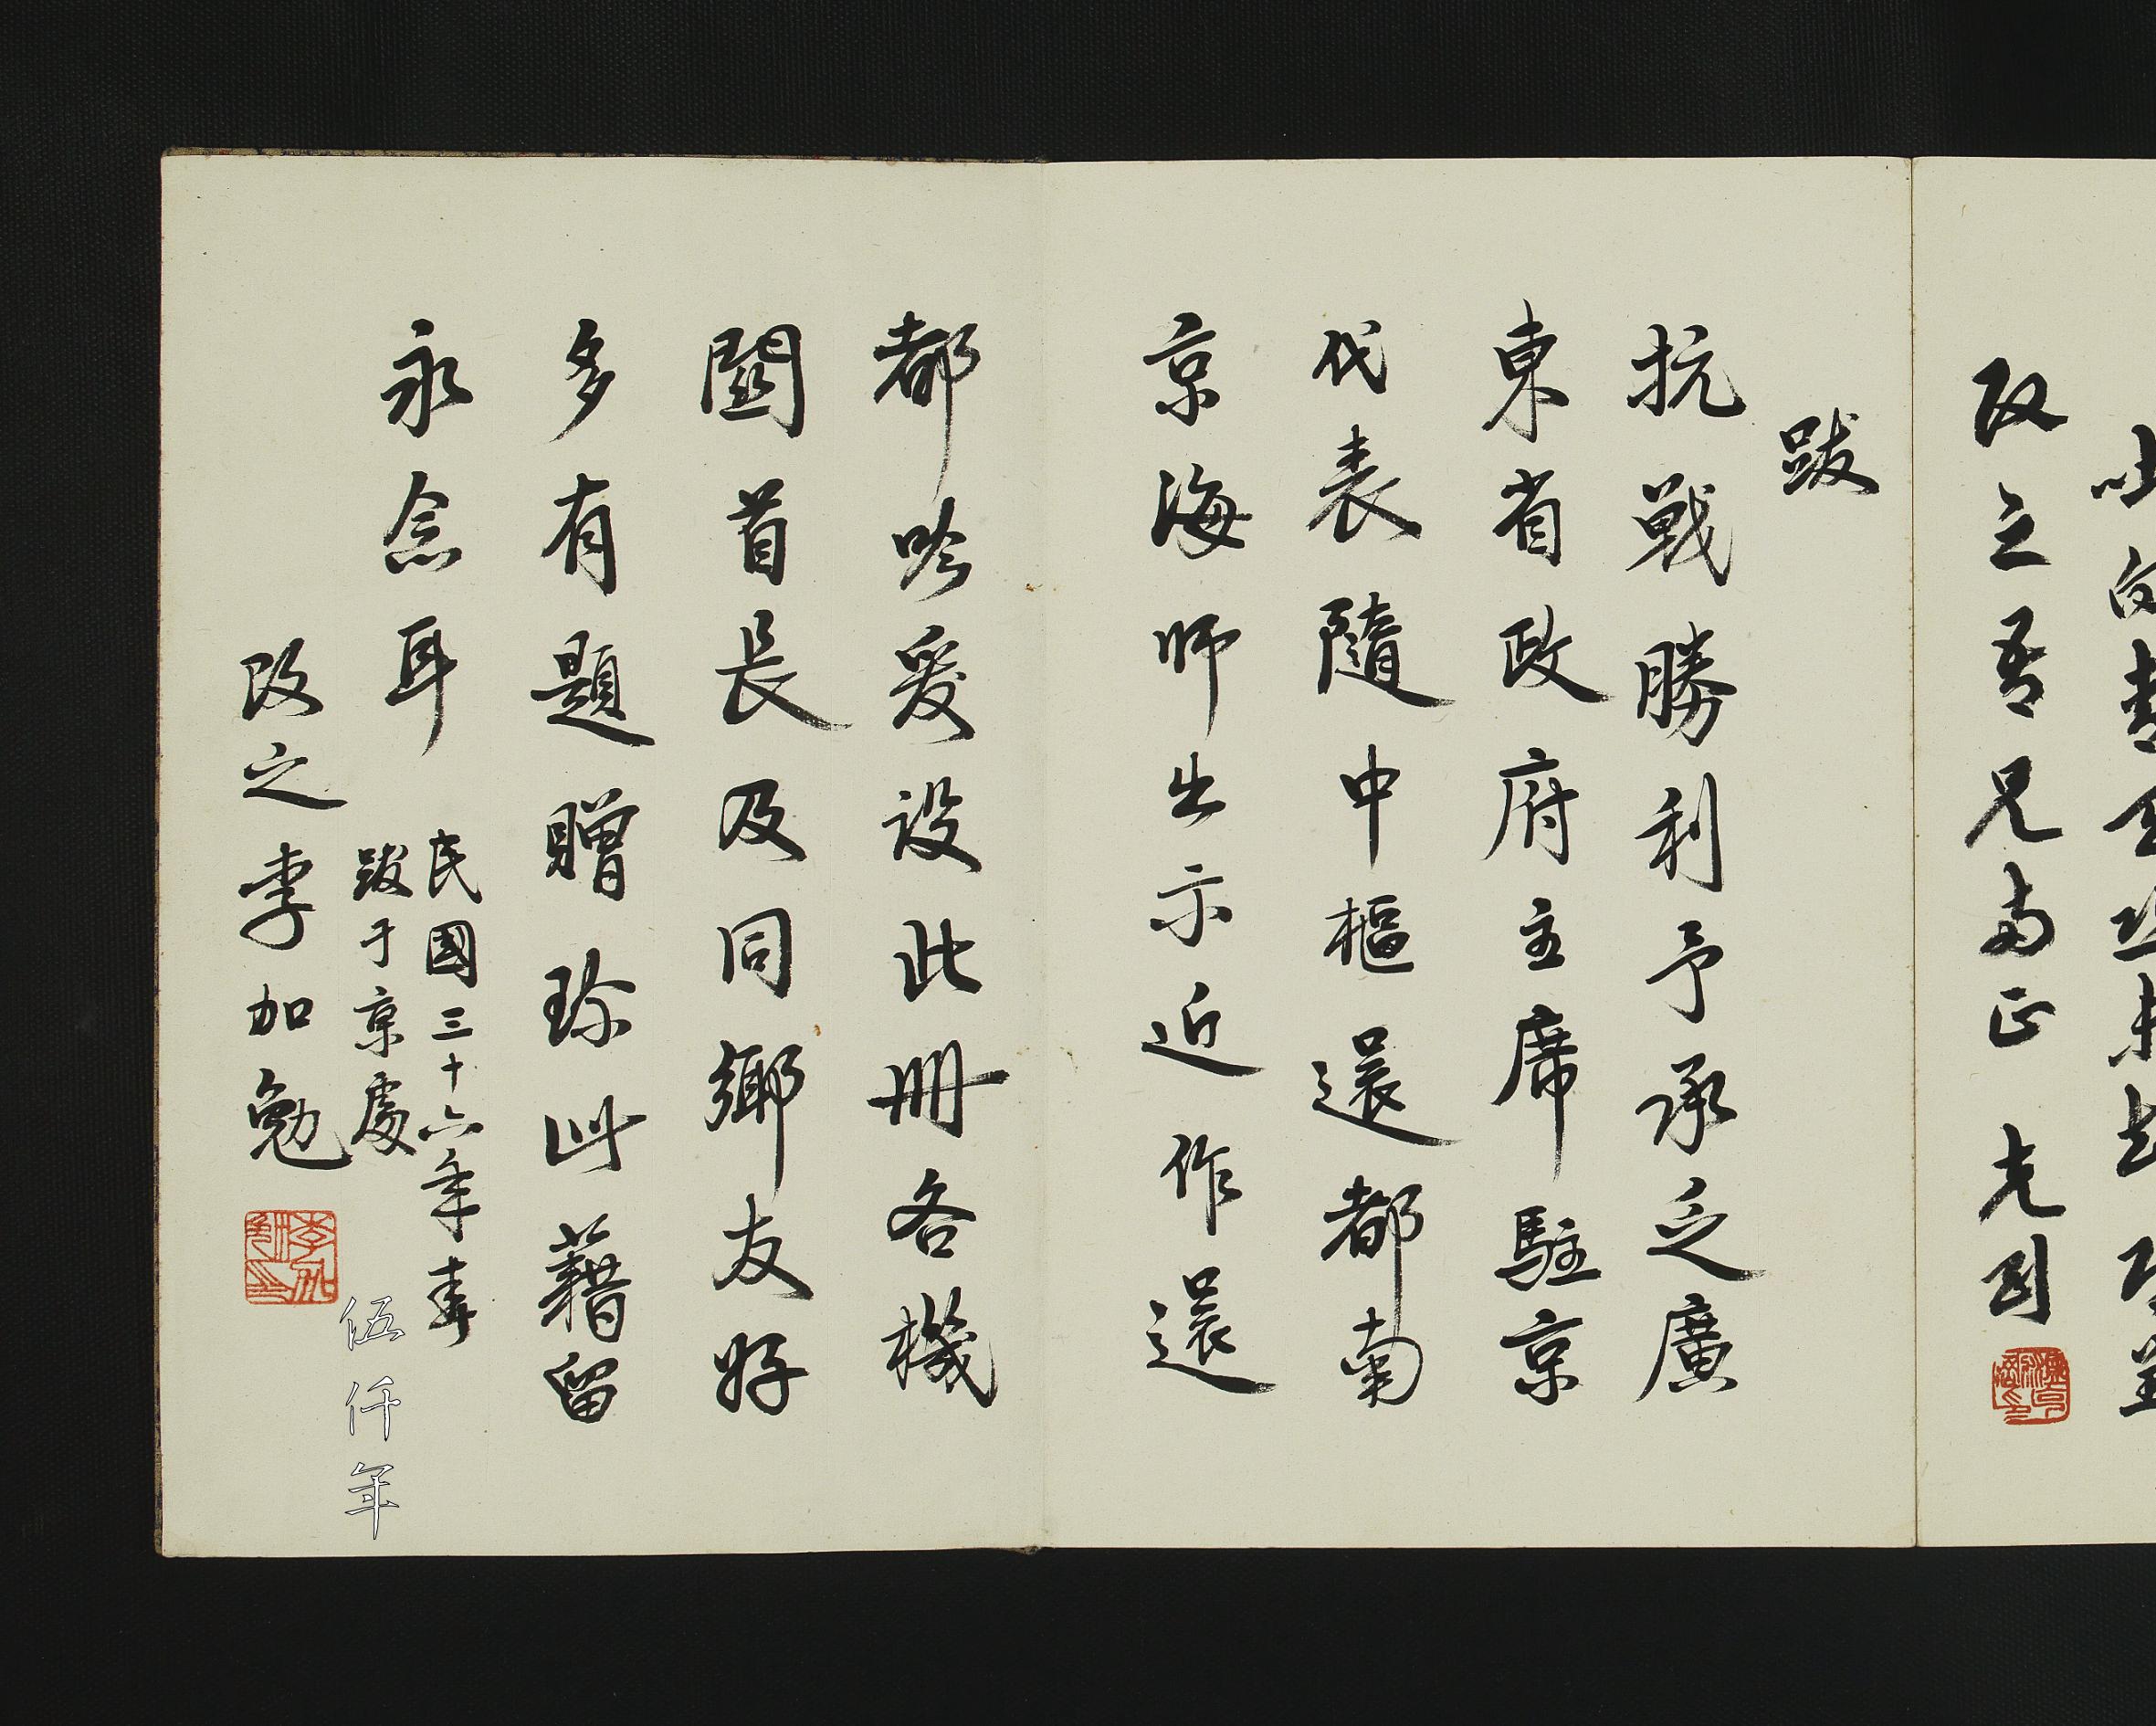 改之吾兄兩正 光團
跋
抗戰勝利予承乏廣
東省政府主席駐京
代表隨中樞還都南
京海师出示近作還
都吟爰设此冊各機
關首長及同鄉友好
多有題贈珍此藉留
永念耳
民國三十六年春
跋于京處
改之李加勉
伍仟年